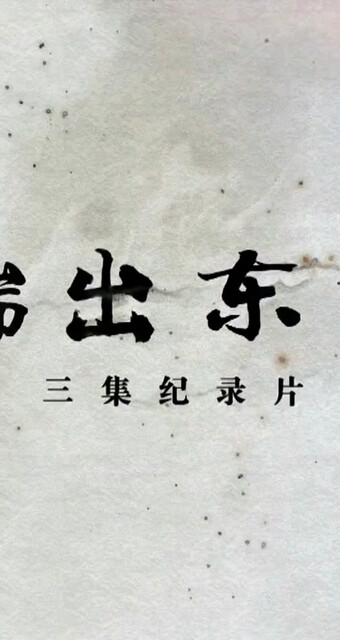 出东
三集纪录片